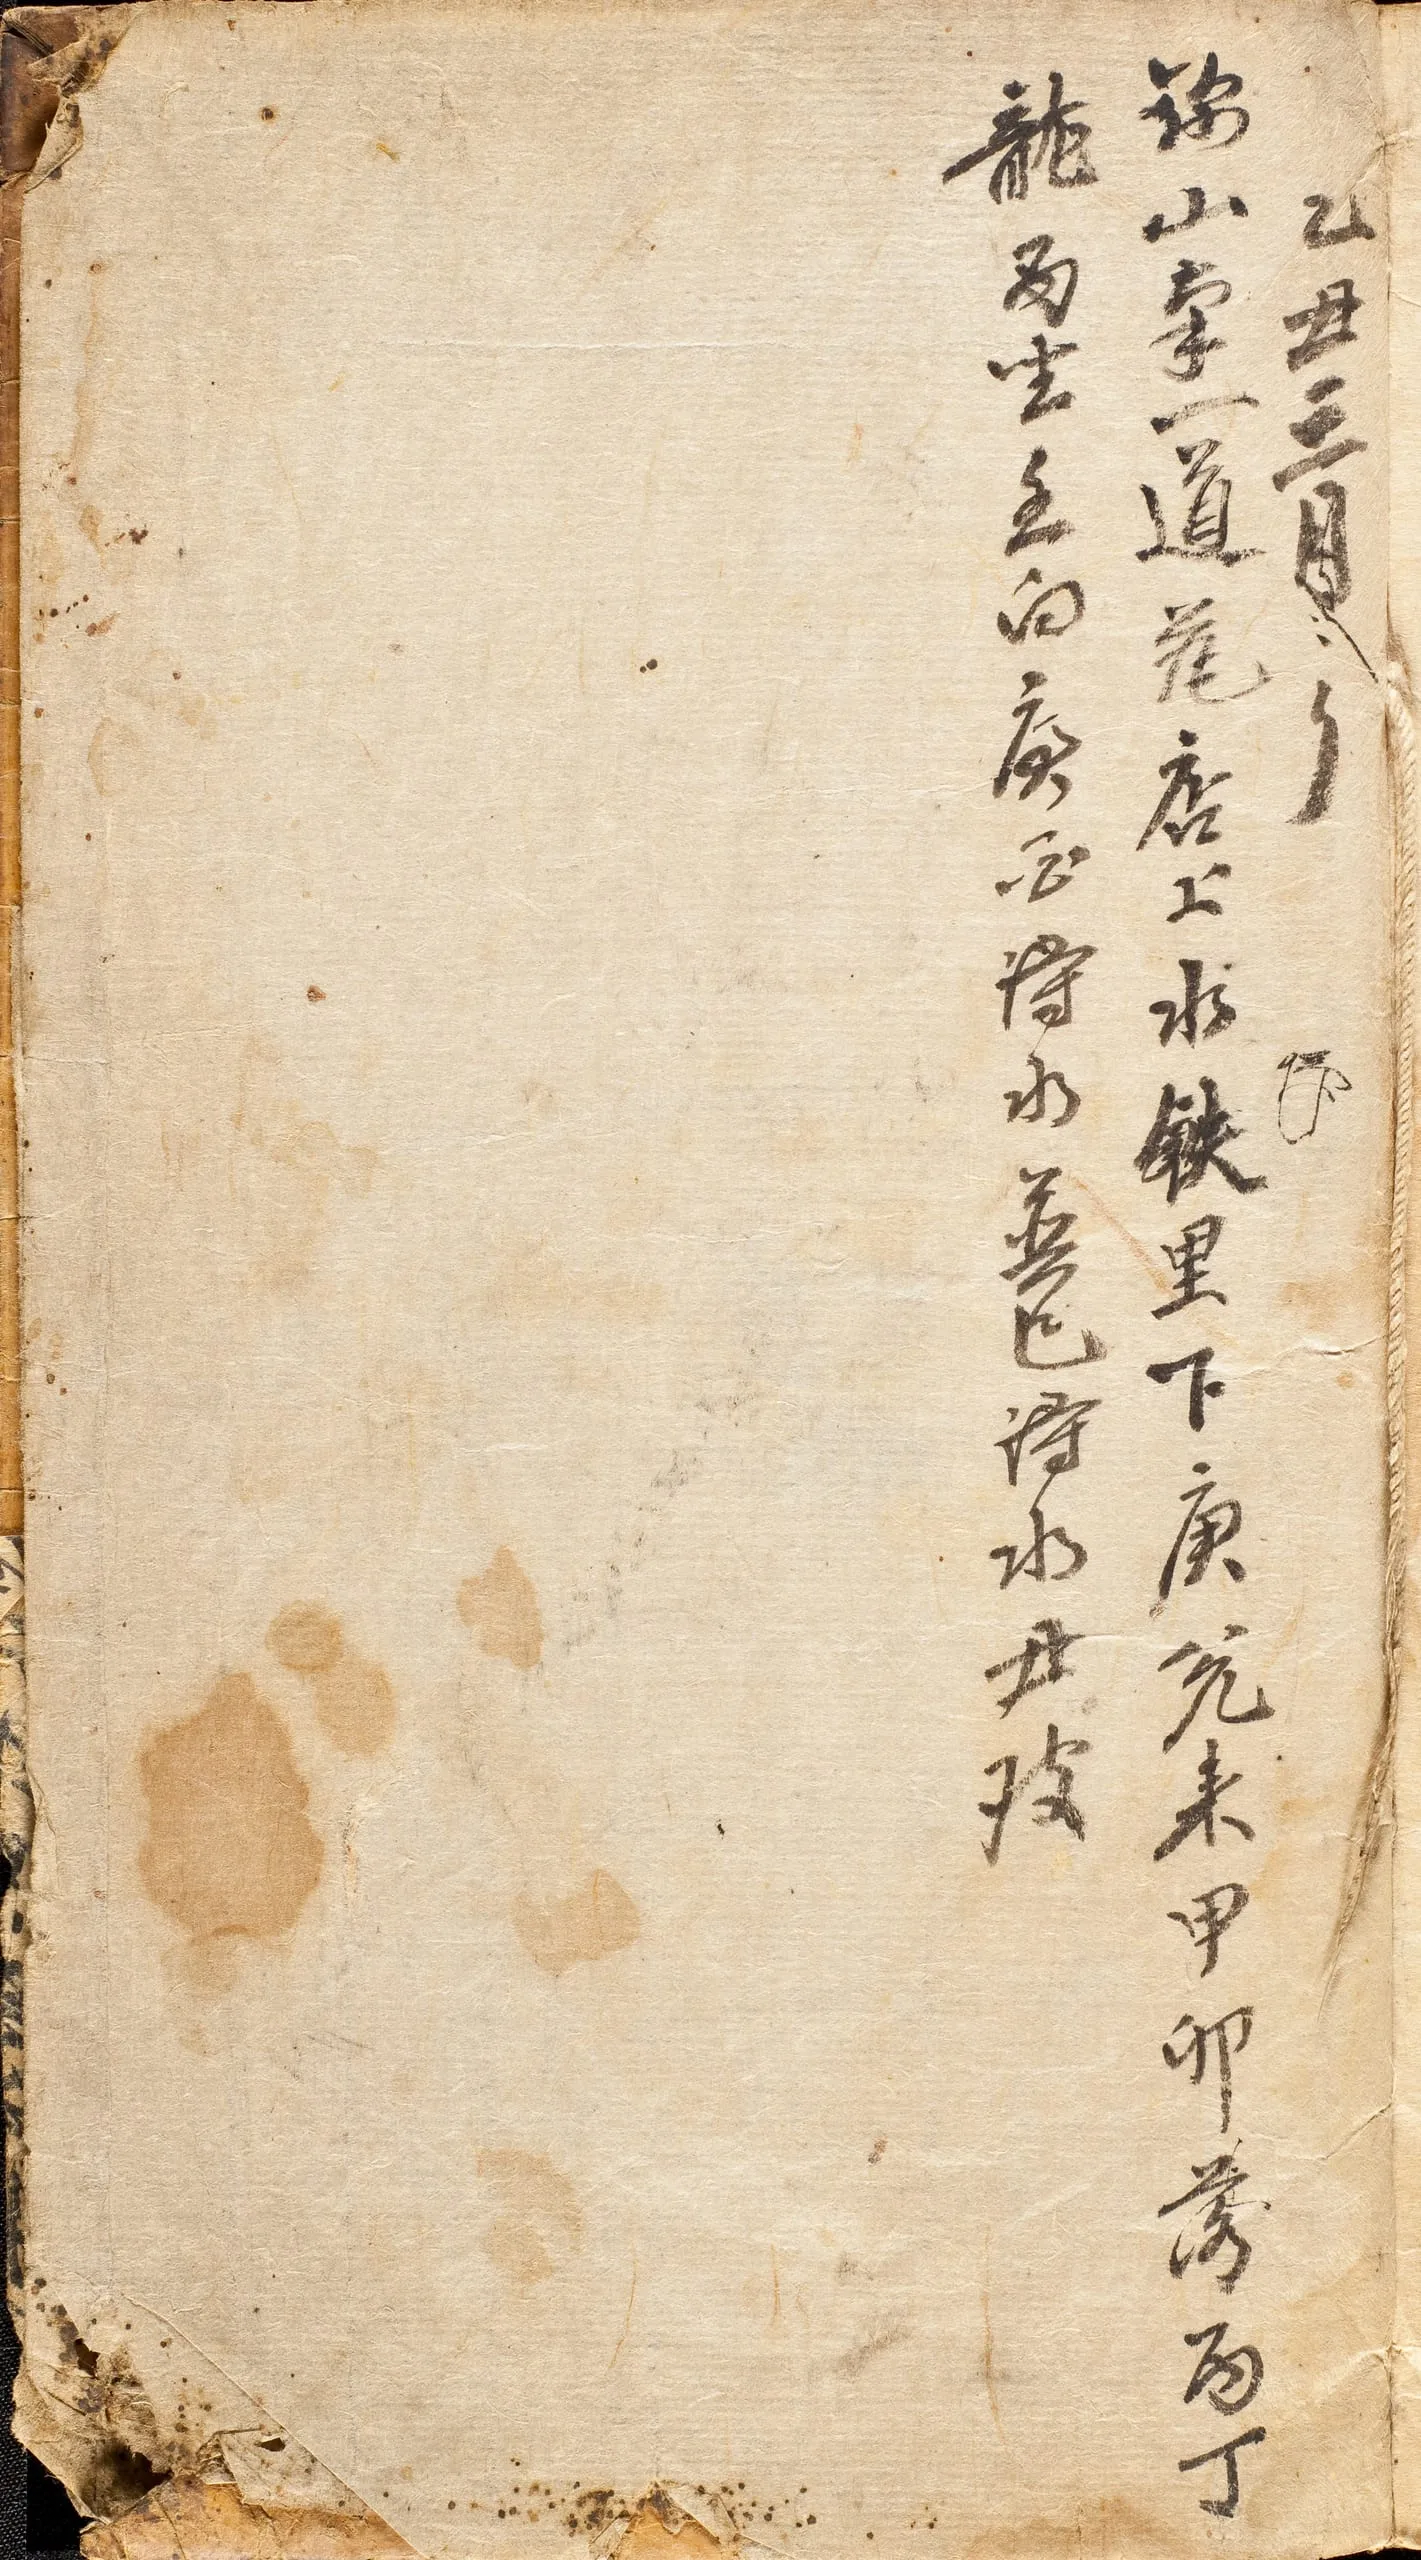 乙丑三月
山掌一道花店上水鉄里下庚兌来甲卯落丙丁
龍丙坐壬向庚酉得水巽巳得水丑破